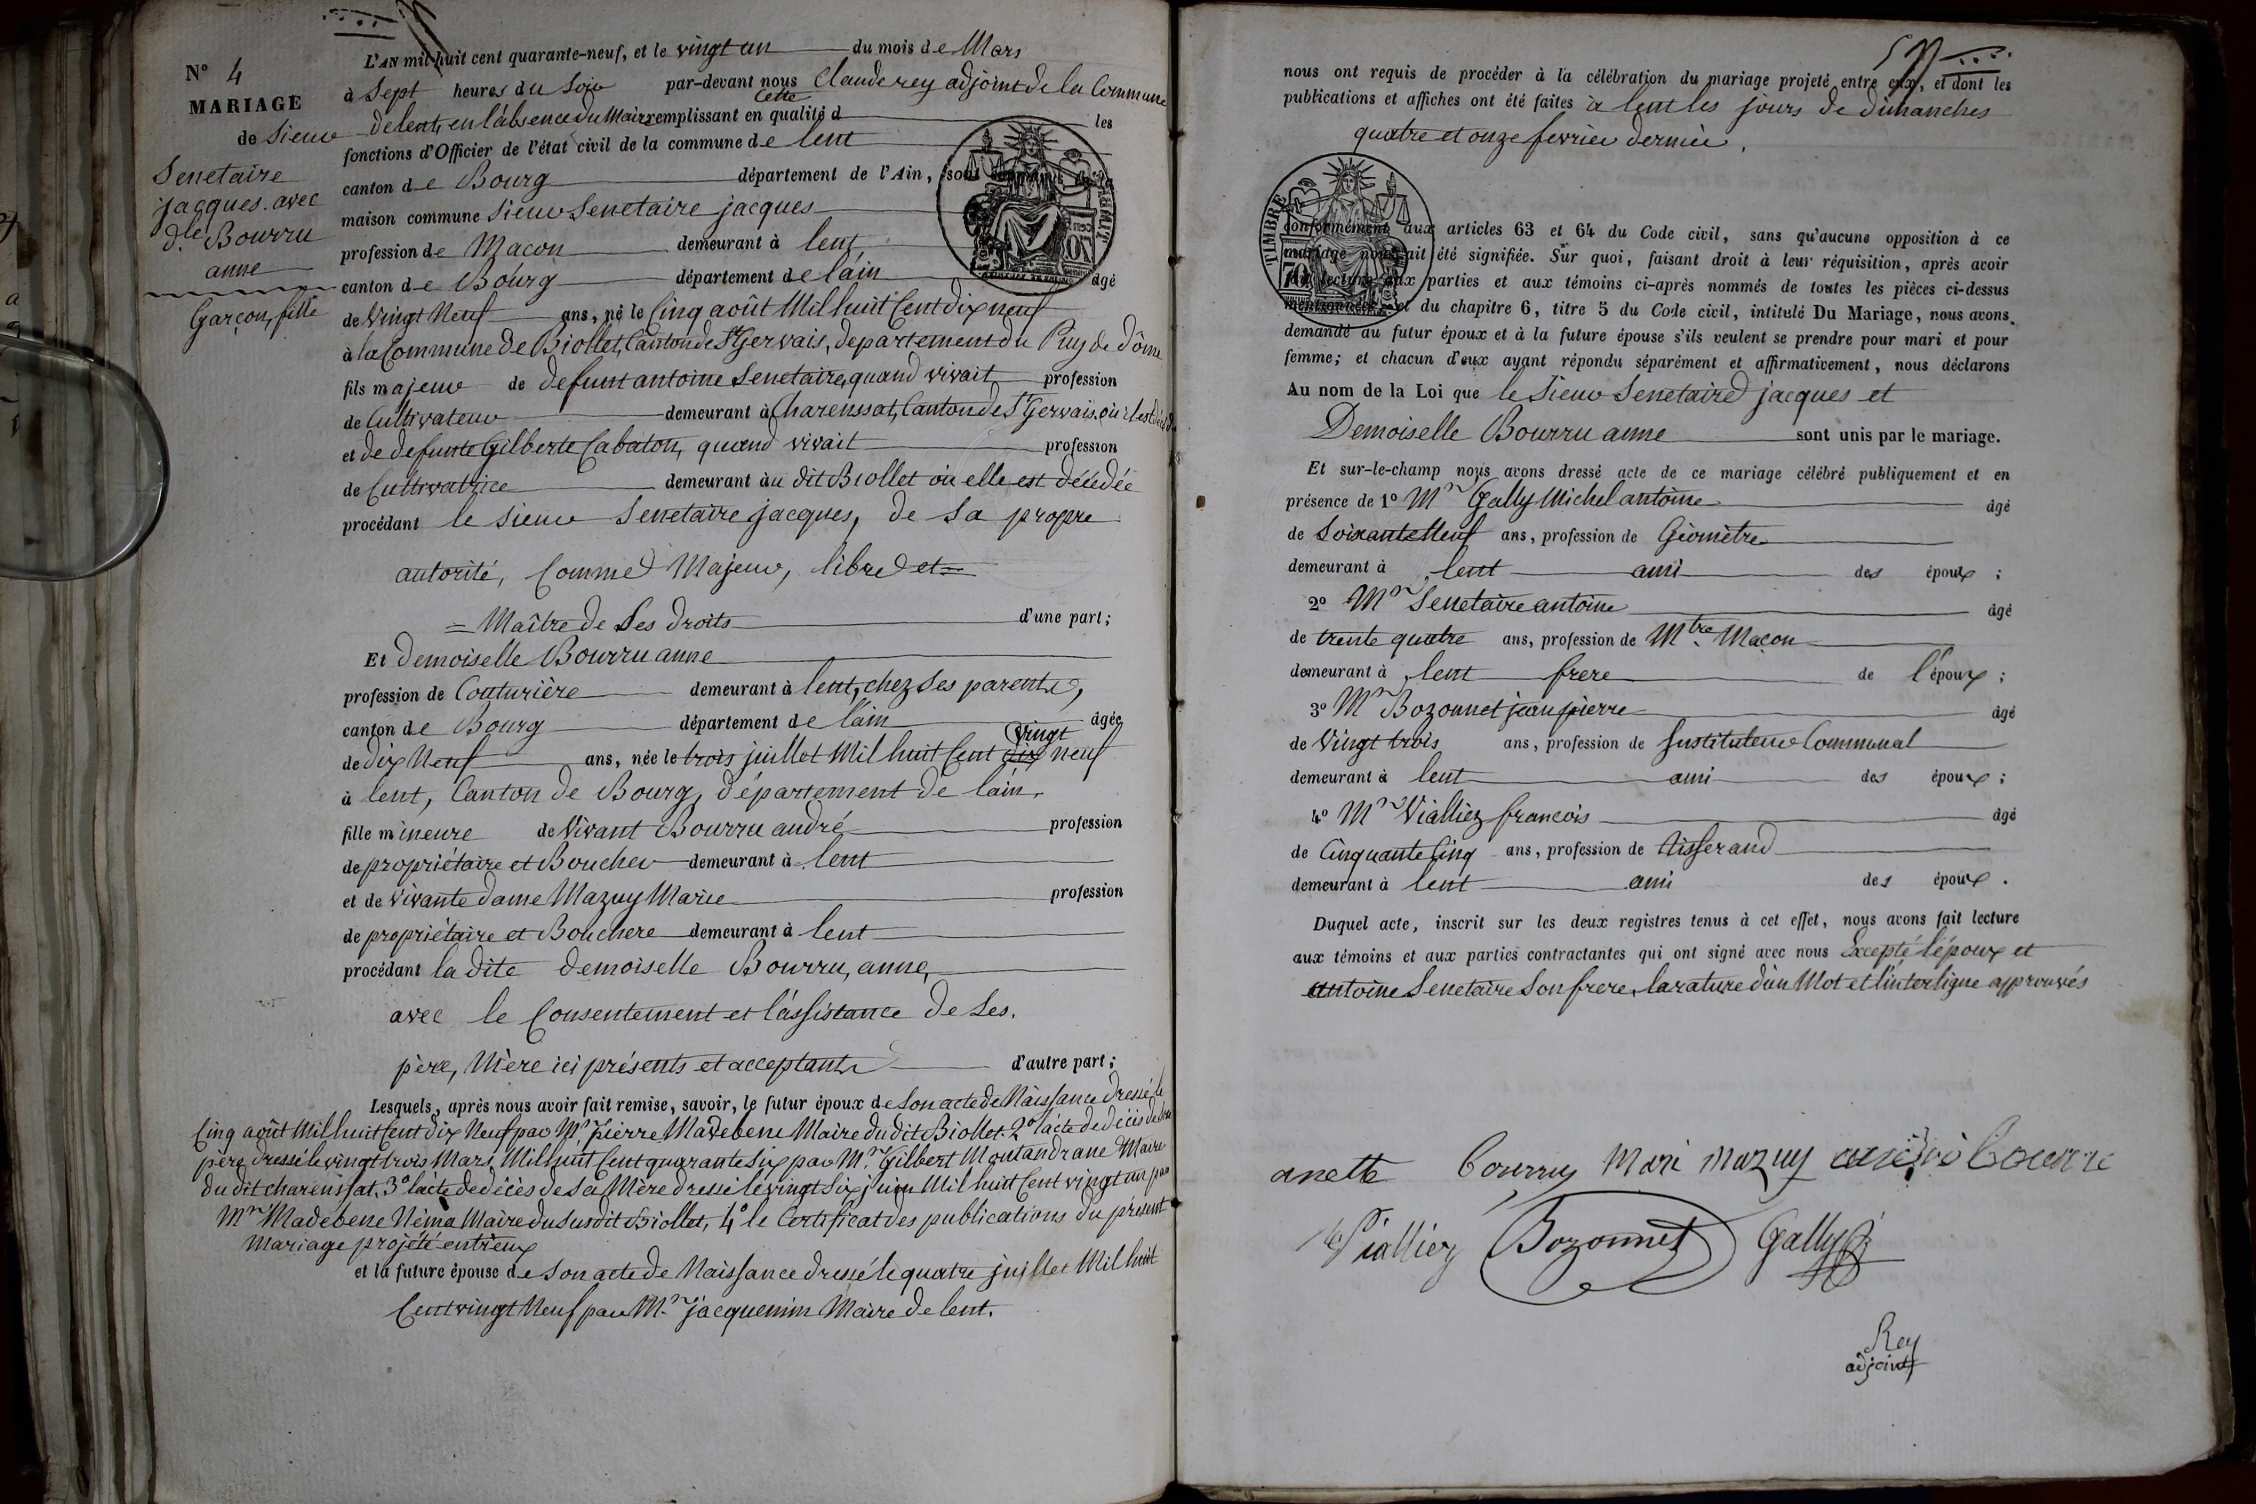 N° 4
MARIAGE
de Sieur
Senetaire
jacques. avec
d.le Bourru
anne
Garçon, fille
L'AN mil huit cent quarante-neuf, et le vingt un du mois de Mars
à Sept heures du Soir par-devant nous Claude rey adjoint de la Commune
Cette
de lent, en l'absence du Maire remplissant en qualité d les
fonctions d'Officier de l'état civil de la commune de lent
canton de Bourg département de l'Ain, sont
maison commune Sieur Senetaire jacques
profession de Macon demeurant à lent
canton de Bourg département de l'ain âgé
de Vingt Neuf ans, né le Cinq août Mil huit Cent dix neuf
à la Commune de Biollet, Canton de St Gervais, departement du Puy de Dôme
fils majeur de defunt antoine Senetaire, quand vivait profession
de Cultivateur demeurant à Charenssat, Canton de St Gervais, où il est décédé
et de defunte Gilberte Cabaton, quand vivait profession
de Cultivatrice demeurant au dit Biollet où elle est décédée
procédant le Sieur Senetaire jacques, de Sa propre
autorité, Comme Majeur, libre et =
= Maître de Ses droits d'une part;
Et demoiselle Bourru anne
profession de Couturière demeurant à lent, chez Ses parents,
canton de Bourg département de l'ain âgée
vingt
de dix Neuf ans, née le trois juillet Mil huit Cent dix neuf
à lent, Canton de Bourg, département de l'ain.
fille mineure de Vivant Bourru andré profession
de propriétaire et Boucher demeurant à lent
et de vivante dame Mazuy Marie profession
de propriétaire et Bouchere demeurant à lent
procédant la dite demoiselle Bourru, anne,
avec le Consentement et l'assistance de Ses.
père, Mère ici présents et acceptants d'autre part;
Lesquels, après nous avoir fait remise, savoir, le futur époux de Son acte de Naissance dressé le
Cinq août Mil huit Cent dix Neuf par Mr. Pierre Madebene Maire du dit Biollet. 2° l'acte de décès de Son
père dressé le vingt trois Mars Mil huit Cent quarante Six par Mr. Gilbert Montandrane Maire
du dit charenssat, 3° l'acte de décès de Sa Mère dressé le vingt Six juin Mil huit Cent vingt un par
Mr Madebene Même Maire du Susdit Biollet, 4° le Certificat des publications du présent
Mariage projété entr'eux
et la future épouse de Son acte de Naissance dressé le quatre juillet Mil huit
Cent vingt Neuf par Mr. jacquemin Maire de lent.
nous ont requis de procéder à la célébration du mariage projeté entre eux, et dont les
publications et affiches ont été faites à lent les jours de dimanches
quatre et onze fevrier dernier.
TIMBRE
conformément aux articles 63 et 64 du Code civil, sans qu'aucune opposition à ce
mariage nous ait été signifiée. Sur quoi, faisant droit à leur réquisition, après avoir
fait lecture aux parties et aux témoins ci-après nommés de toutes les pièces ci-dessus
mentionnées et du chapitre 6, titre 5 du Code civil, intitulé Du Mariage, nous avons
demandé au futur époux et à la future épouse s'ils veulent se prendre pour mari et pour
femme; et chacun d'eux ayant répondu séparément et affirmativement, nous déclarons
Au nom de la Loi que le Sieur Senetaire jacques et
Demoiselle Bourru anne sont unis par le mariage.
Et sur-le-champ nous avons dressé acte de ce mariage célébré publiquement et en
présence de 1° Mr Gally Michel antoine âgé
de Soixante Neuf ans, profession de Géomètre
demeurant à lent ami des époux ;
2° Mr Senetaire antoine âgé
de trente quatre ans, profession de Mtre Maçon
demeurant à lent frere de l'époux ;
3° Mr Bozonnet jean pierre âgé
de Vingt trois ans, profession de Instituteur Communal
demeurant à lent ami des époux ;
4° Mr Vialliez francois âgé
de Cinquante Cinq ans, profession de tisserand
demeurant à lent ami des époux .
Duquel acte, inscrit sur les deux registres tenus à cet effet, nous avons fait lecture
aux témoins et aux parties contractantes qui ont signé avec nous Excepté l'époux et
antoine Senetaire Son frere, la rature d'un Mot et l'interligne approuvés
anette Bourru Mari mazuy
Vialliez Bozonnet Gally
Rey
adjoint